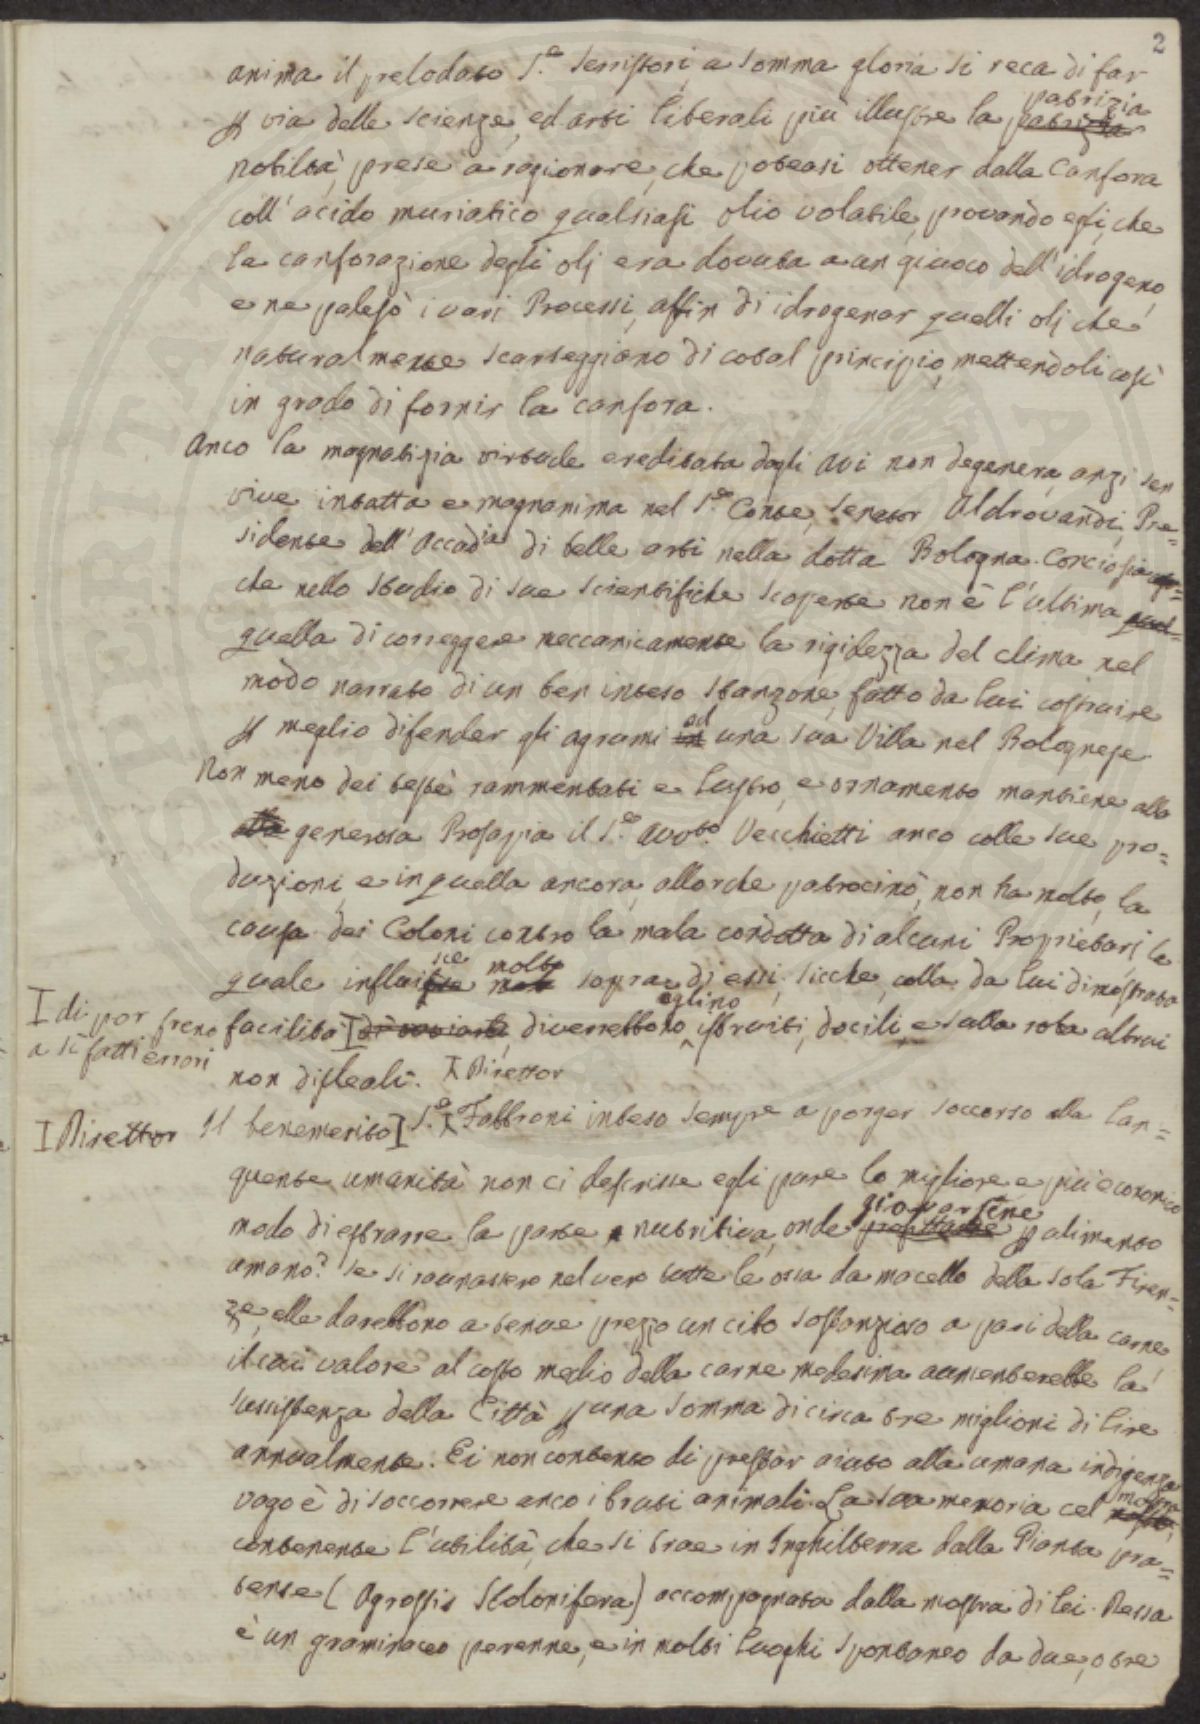 2
anima il prelodato S.e Serristori, a somma gloria si reca di far
p via delle scienze, ed arti liberali più illustre la patrizia
nobiltà, prese a ragionare, che poteasi ottener dalla Canfora
coll'acido muriatico qualsiasi olio volatile, provando egli, che
la canforazione degli olj era dovuta a un giuoco dell'idrogeno,
e ne palesò i varj Processi, affin di idrogenar quelli olj che
naturalmente scarseggiano di cotal principio, mettendoli così
in grado di fornir la canfora.
Anco la magnatizia virtude ereditata dagli Avi non degenera, anzi sen
vive intatta e magnanima nel S.e Conte, Senator Aldrovandi, Pre=
sidente dell'Accad.ia di belle arti nella dotta Bologna. Conciosia
che nello studio di sue scientifiche scoperte non è l'ultima
quella di correggere meccanicamente la rigidezza del clima nel
modo narrato di un ben inteso stanzone, fatto da lui costruire
p meglio difender gli agrumi ad una sua Villa nel Bolognese.
Non meno dei testè rammentati e lustro, e ornamento mantiene alla
generosa Prosapia il S.e Avv.to Vecchietti anco colle sue pro=
duzioni, e in quella ancora, allorche patrocinò, non ha molto, la
causa dei Coloni contro la mala condotta di alcuni Proprietarj la
quale influisce molto sopra di essi; sicche, colla da lui dimostrata
facilità I diverrebbono eglino istruiti, docili, e sulla roba altrui
I di por freno
a sì fatti errori
non disleali. I Direttor
I Direttor
Il benemerito I S.e Fabbroni inteso sempre a porger soccorso alla lan=
guente umanità non ci descrisse egli pure lo migliore e più economico
modo di estrarre la parte nutritiva, onde giovarsene p alimento
umano? Se si raunassero nel vero tutte le ossa da macello della sola Firen=
ze, elle darebbono a tenue prezzo un cibo sostanzioso a pari della carne,
il cui valore al costo medio della carne medesima aumenterebbe la
sussistenza della Città p una somma di circa tre miglioni di lire
annualmente. Ei non contento di prestar aiuto alla umana indigenza
vago è di soccorrere anco i bruti animali. La sua memoria cel mostra
contenente l'utilità, che si trae in Inghilterra dalla Pianta pra=
tense (Agrostis Stolonifera) accompagnata dalla mostra di lei. Dessa
è un graminaceo perenne, e in molti luoghi spontaneo da due, o tre